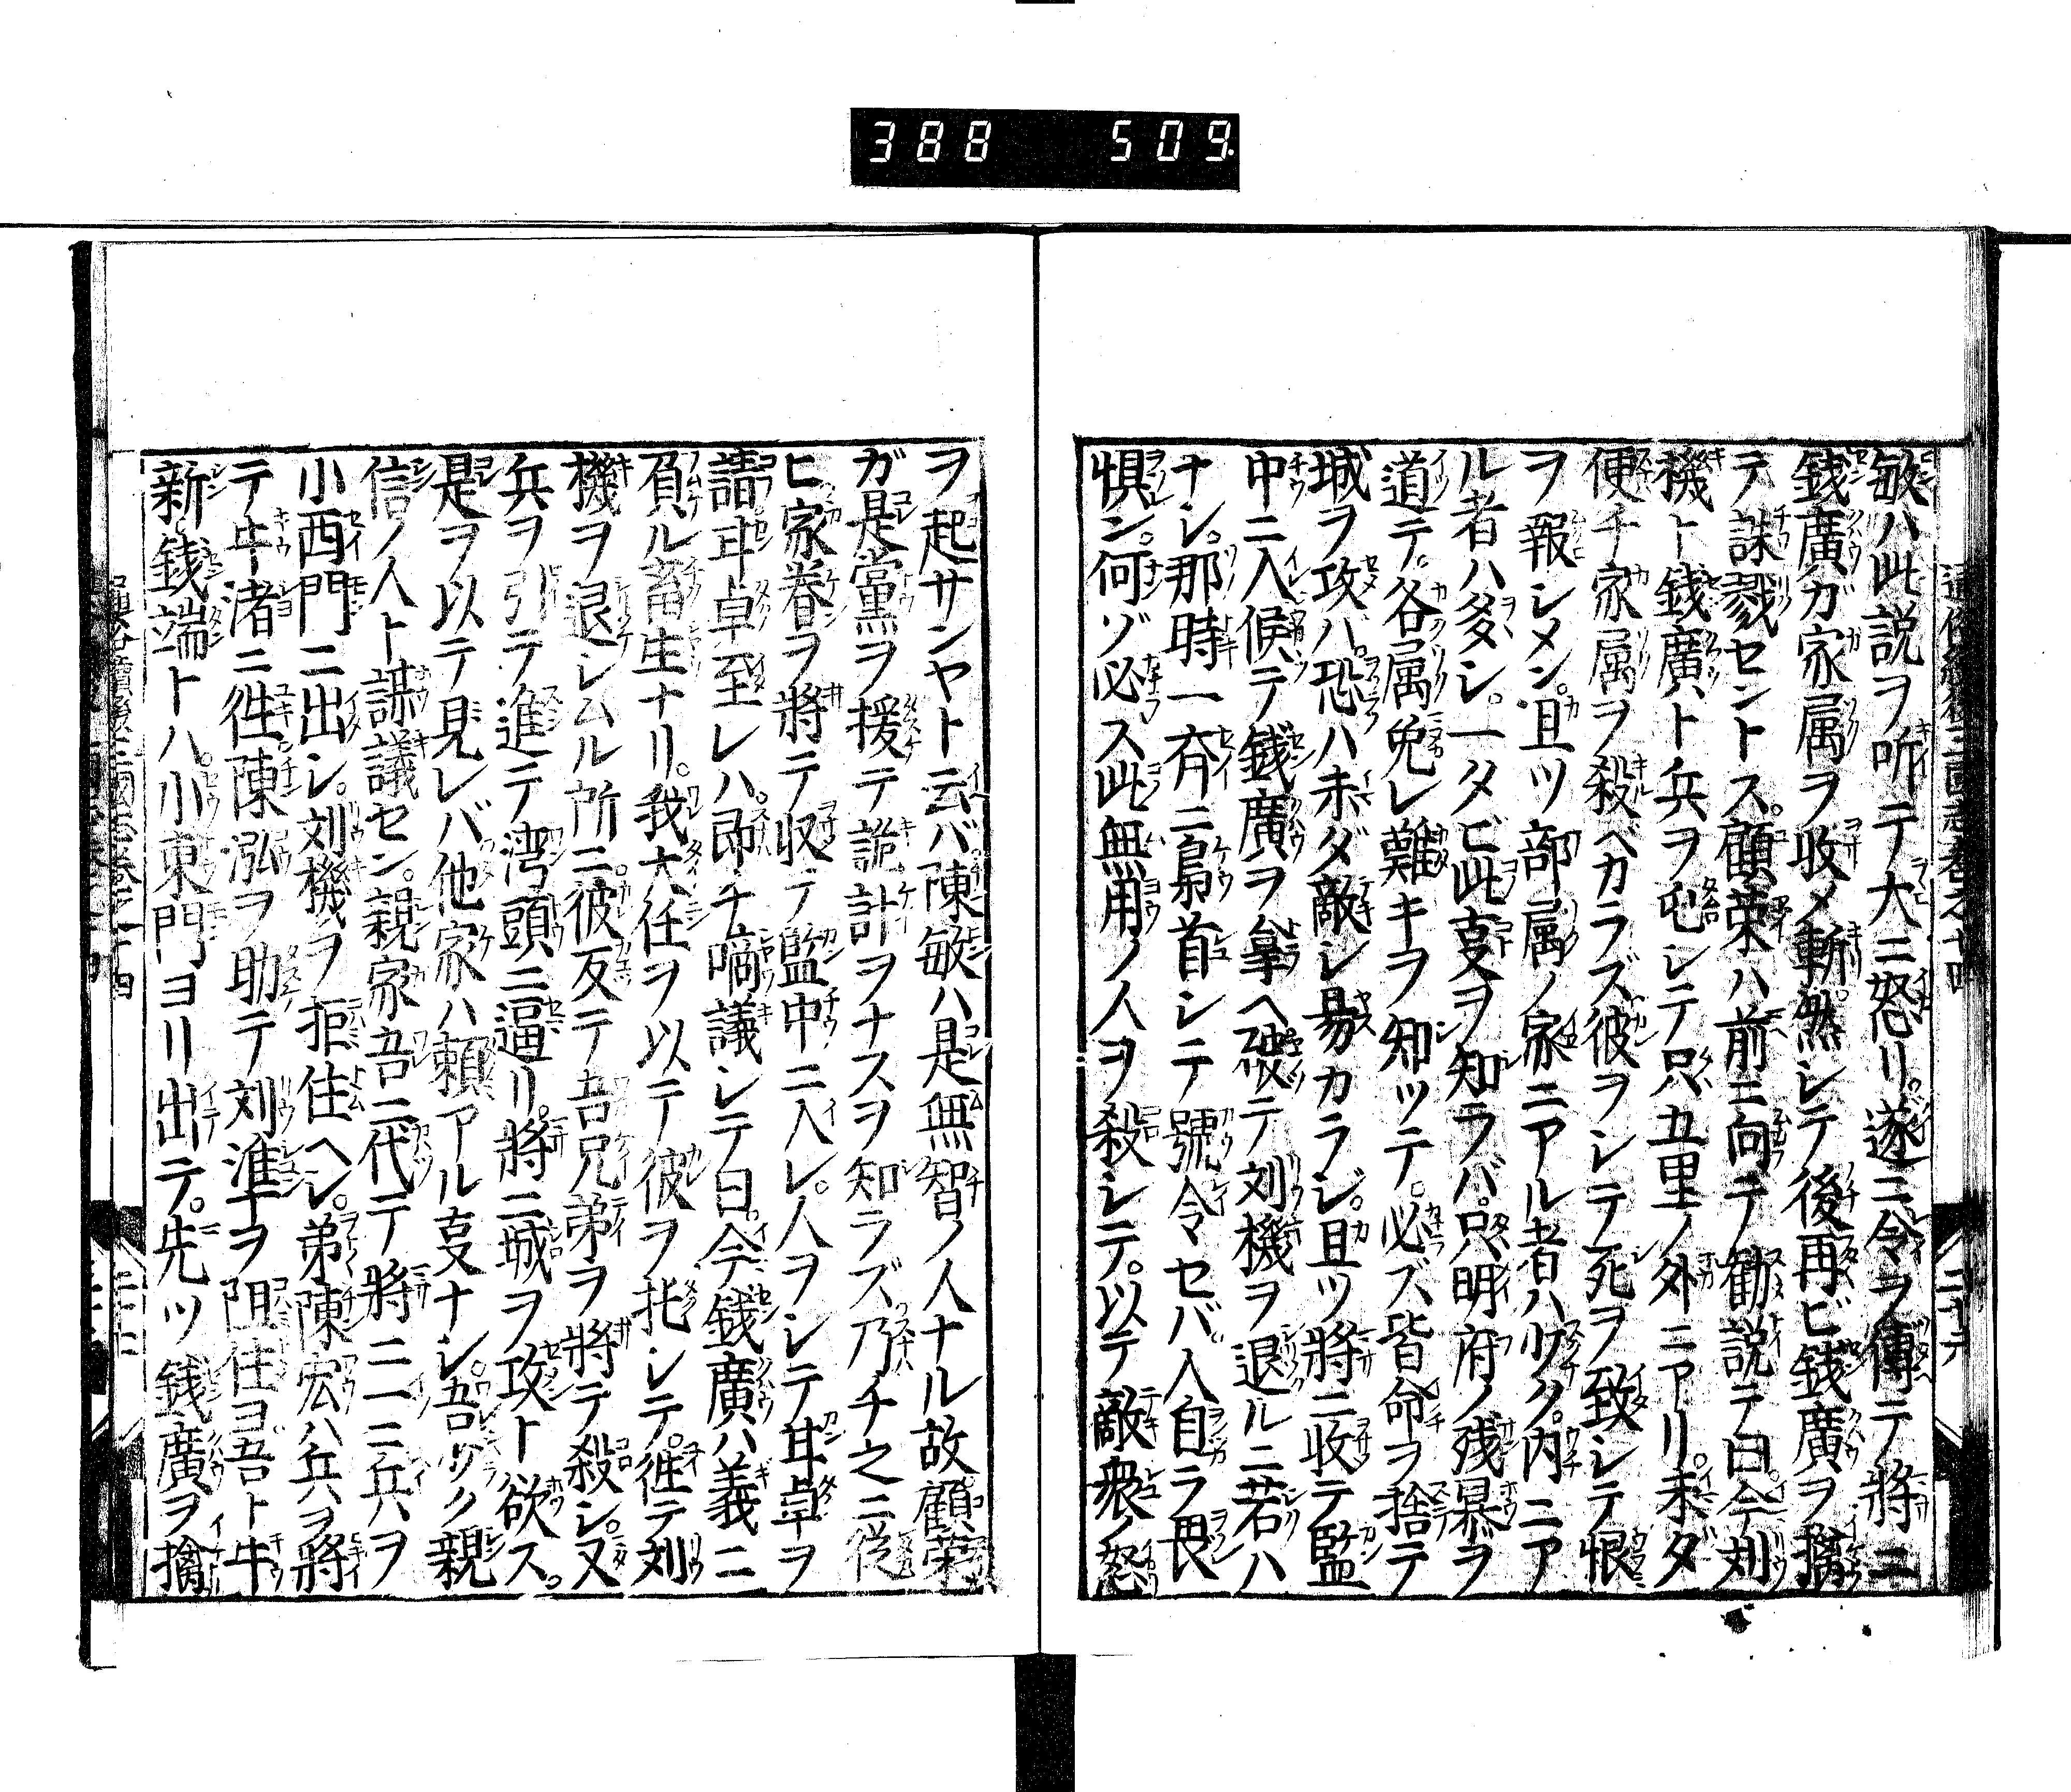 388 509.
敏ハ此説ヲ听テ大ニ怒リ。遂ニ令ヲ傳テ將ニ
銭廣ガ家属ヲ收メ斬𤍨シテ後再ビ銭廣ヲ擒
テ誅戮セントス。顧栄ハ前ニ向テ勧説テ曰。今刘
機ト銭廣ト兵ヲ屯シテ只五里ノ外ニアリ。未ダ
便チ家属ヲ殺ベカラズ彼ヲシテ死ヲ致シテ恨
ヲ報シメン。且ツ部属ノ家ニアル者ハ少ク。内ニア
ル者ハ多シ。一タビ此叓ヲ知ラバ。只明府ノ残暴ヲ
道テ。各属免レ難キヲ知ツテ。必ズ皆命ヲ捨テ
城ヲ攻バ。恐ハ未ダ敵シ易カラジ。且ツ將ニ收テ監
中ニ入候テ銭廣ヲ拿ヘ破テ刘機ヲ退ルニ若ハ
ナシ。那時一斉ニ梟首シテ號令セバ。人自ラ畏
惧ン。何ゾ必ス此無用ノ人ヲ殺シテ。以テ敵衆ノ怒
ヲ起サンヤト云バ陳敏ハ是無智ノ人ナル故顧栄
ガ是黨ヲ援テ詭計ヲナスヲ知ラズ乃チ之ニ従
ヒ家眷ヲ將テ収テ監中ニ入レ。人ヲシテ甘卓ヲ
請甘卓至レハ。即チ啇議シテ曰。今銭廣ハ義ニ
負ル畜生ナリ。我大任ヲ以テ彼ヲ托シテ。徃テ刘
機ヲ退シムル所ニ。彼反テ吾兄弟ヲ將テ殺シ。又
兵ヲ引テ進テ湾頭ニ逼リ。將ニ城ヲ攻ト欲ス。
是ヲ以テ見レバ他家ハ頼アル叓ナシ。吾少ク親
信ノ人ト謀議セン。親家吾ニ代テ將ニ一二兵ヲ
小西門ニ出シ。刘機ヲ拒住ヘシ。弟陳宏ハ兵ヲ將
テ牛渚ニ徃陳泓ヲ助テ刘準ヲ阻住ヨ吾ト牛
新。銭端トハ。小東門ヨリ出テ。先ツ銭廣ヲ擒